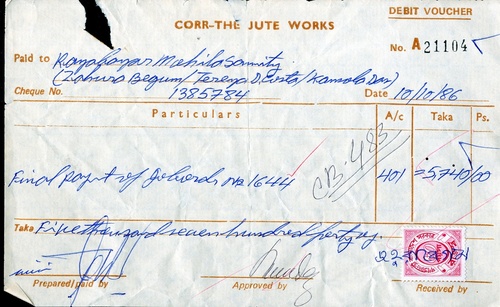 DEBIT VOUCHER
CORR-THE JUTE WORKS
No. A21104
Paid to Rayabazar Mahila Samity
(Zahura Begum/Tereza D'Costa/Kamola Das)
Cheque No. 1385784 Date 10/10/86
Particulars A/c Taka Ps.
CB-483
Final paymt of Joborder no 1644 401 =5,740/00
Taka Five thousand seven hundred forty only
Prepared/paid by Approved by Received by